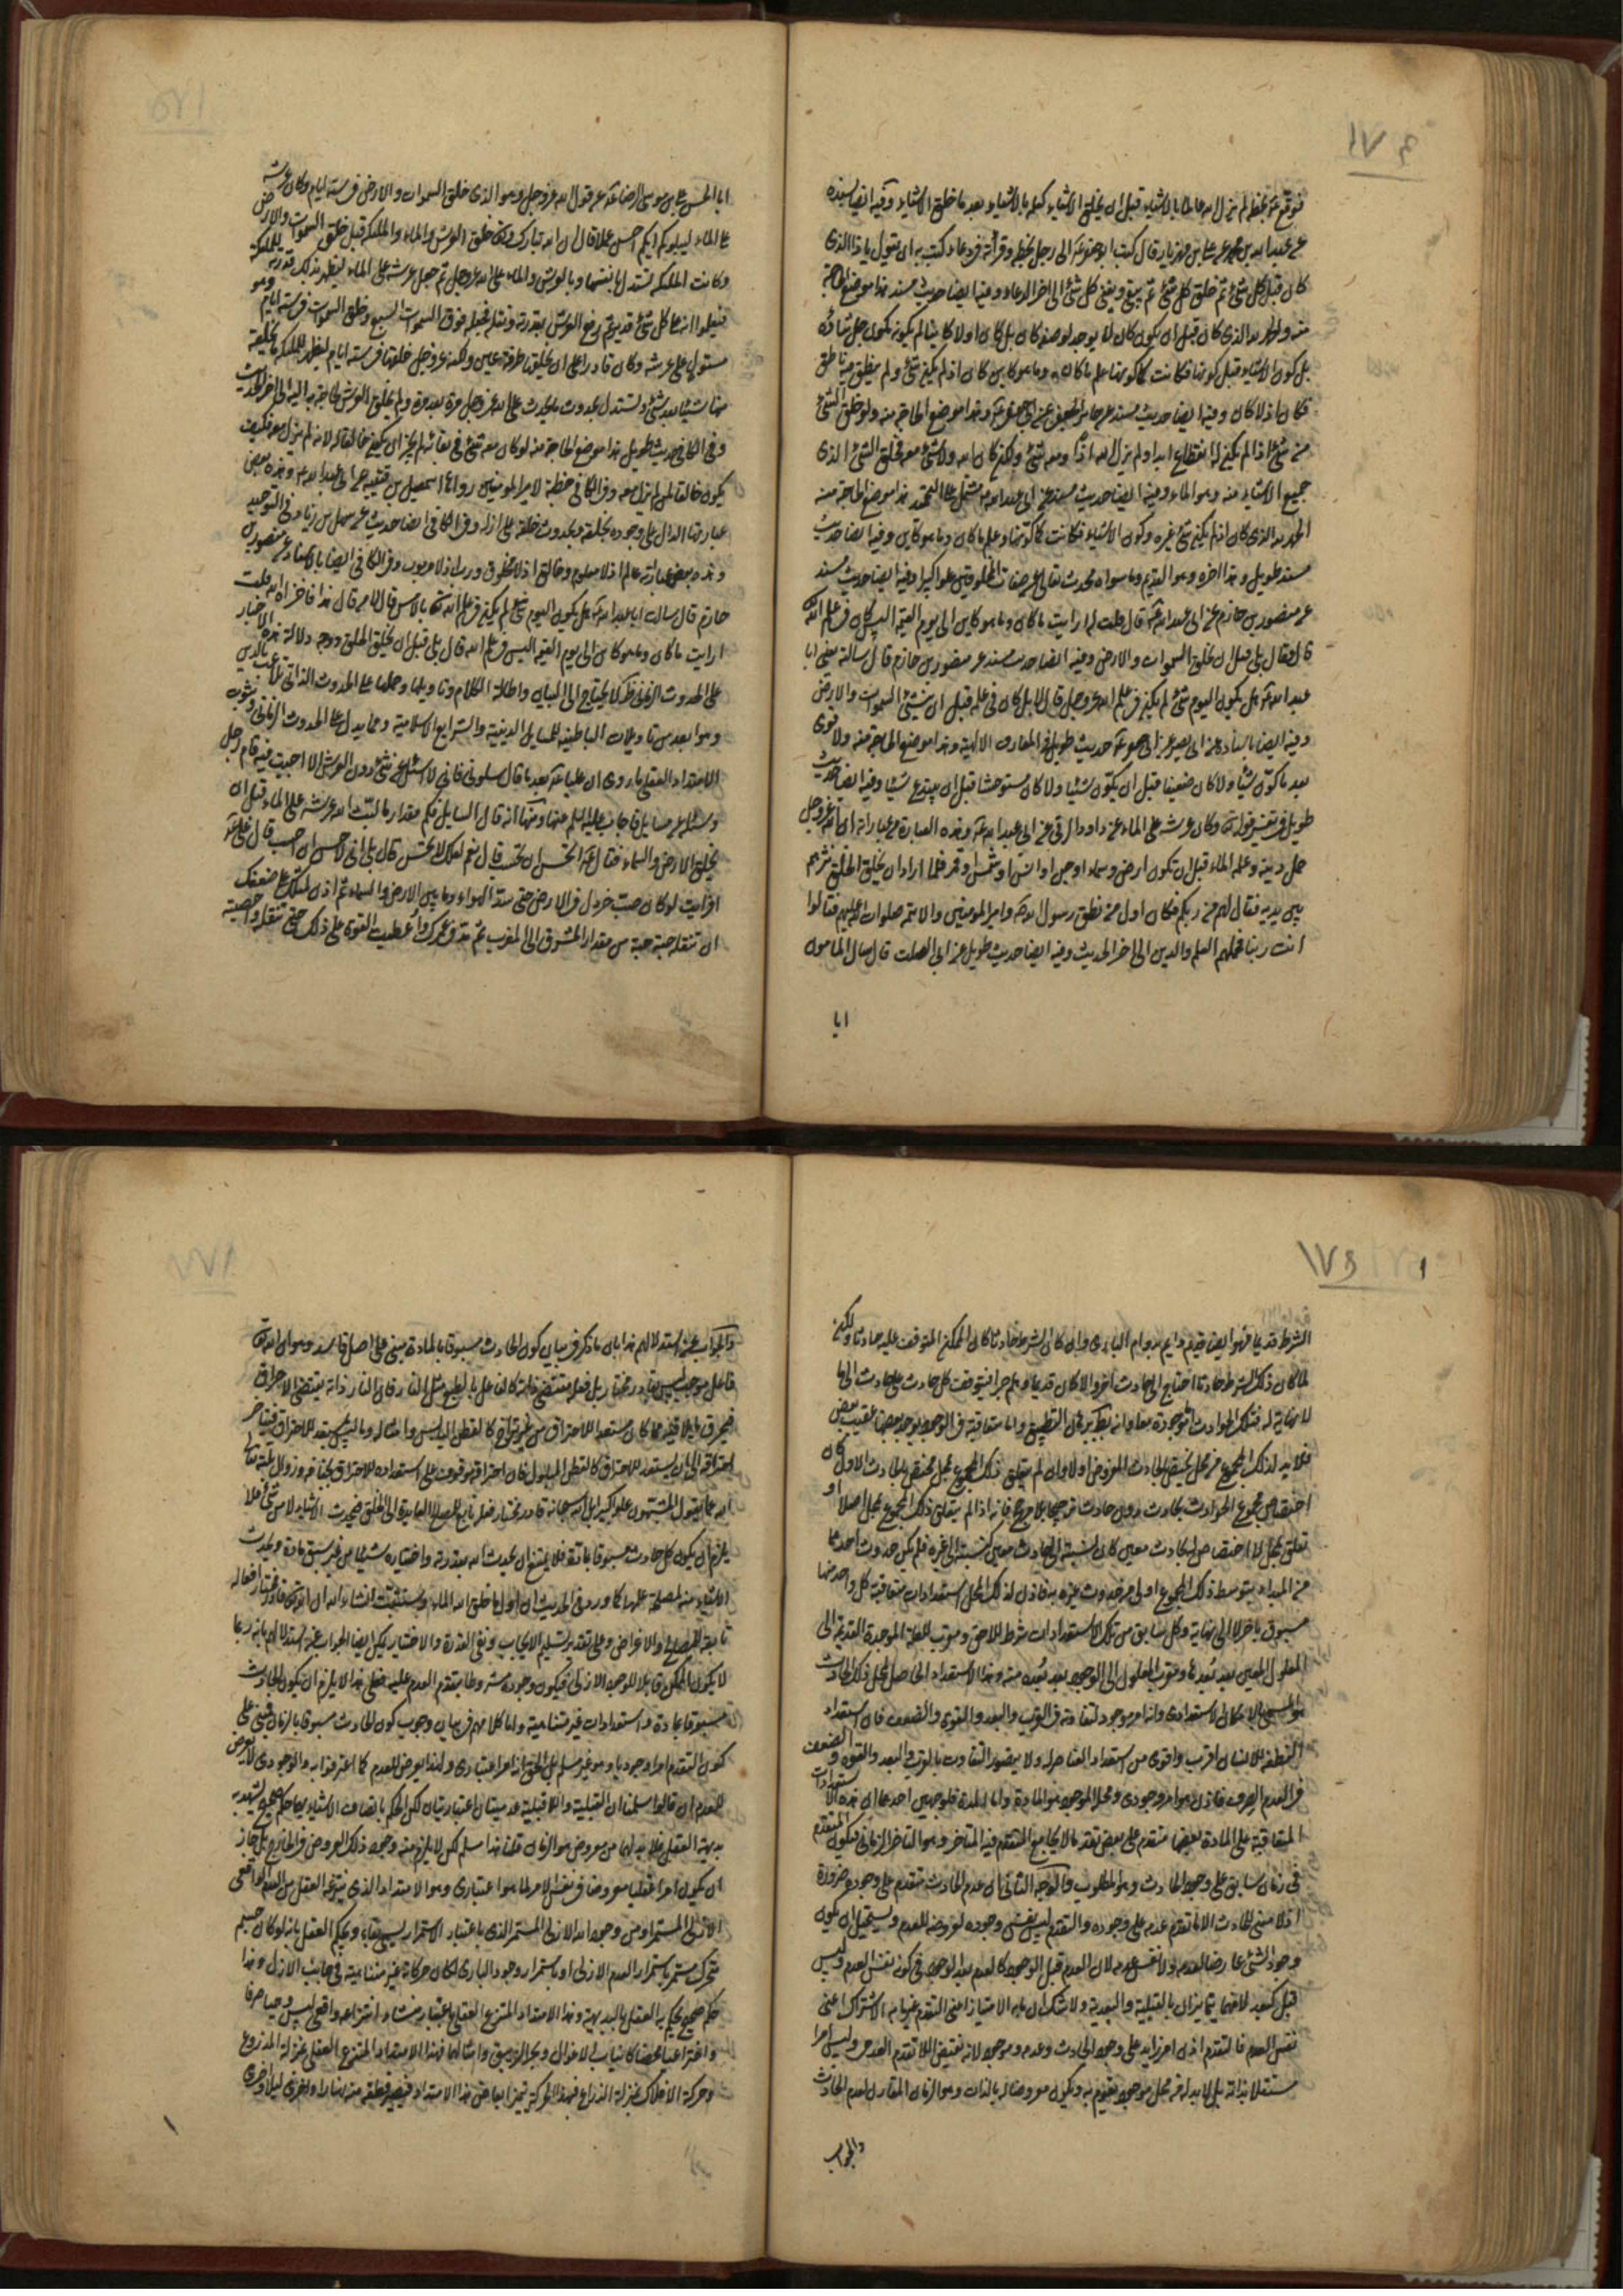 فوقع ع بخطه لم يزل الله عالما بالاشياء قبل ان يخلق الاشياء كعلمه بالاشياء بعد ما خلق الاشياء وفيه ايضا بسنده
عن عبد الله بن محمد عن علي بن مهزيار قال كتب ابو جعفر ع الى رجل بخطه وقرأته في دعاء كتب به ان يقول يا ذا الذي
كان قبل كل شئ ثم خلق كل شئ ثم يبقى ويفنى كل شئ الى اخر الدعاء وفيه ايضا حديث مسند هذا موضع الحاجة
منه والحمد لله الذي كان قبل ان يكون كان لا يوجد لوصفه كان بل كان اولا كاينا لم يكونه مكون جل ثناؤه
بل كون الاشياء قبل كونها فكانت كما كونها علم ما كان وما هو كاين كان اذ لم يكن شئ ولم ينطق فيه ناطق
فكان اذ لا كان وفيه ايضا حديث مسند عن جابر الجعفي عن ابي جعفر ع وهذا موضع الحاجة منه ولو خلق الشئ
من شئ اذا لم يكن له انقطاع ابدا ولم يزل الله اذا ومعه شئ ولكن كان الله ولا شئ معه فخلق الشئ الذي
جميع الاشياء منه وهو الماء وفيه ايضا حديث مسند عن ابي عبد الله ع مشتمل على التحميد هذا موضع الحاجة منه
الحمد لله الذي كان اذ لم يكن شئ غيره وكون الاشياء فكانت كما كونها وعلم ما كان وما هو كاين وفيه ايضا حديث
مسند طويل وهذا اخره وهو القديم وما سواه محدث تعالى عن صفات المخلوقين علوا كبيرا وفيه ايضا حديث مسند
عن منصور بن حازم عن ابي عبد الله ع قال قلت له ارايت ما كان وما هو كاين الى يوم القيمة اليس كان في علم الله
قال فقال بلى قبل ان يخلق السموات والارض وفيه ايضا حديث مسند عن منصور بن حازم قال سالته يعني ابا
عبد الله ع هل يكون اليوم شئ لم يكن في علم الله عز وجل قال لا بل كان في علمه قبل ان ينشئ السموات والارض
وفيه ايضا باسناده عن ابي بصير عن ابي جعفر ع حديث طويل في المعارف الالهية وهذا موضع الحاجة منه ولا قوى
بعد ما كون شيئا ولا كان ضعيفا قبل ان يكون شيئا ولا كان مستوحشا قبل ان يبتدع شيئا وفيه ايضا حديث
طويل في تفسير قوله تع وكان عرشه على الماء عن داود الرقي عن ابي عبد الله ع وهذه العبارة من عباراته ان الله عز وجل
حمل دينه وعلمه الماء قبل ان تكون ارض وسماء او جن او انس او شمس او قمر فلما اراد ان يخلق الخلق نثرهم
بين يديه فقال لهم من ربكم فكان اول من نطق رسول الله ص وامير المؤمنين والائمة صلوات الله عليهم فقالوا
انت ربنا فحملهم العلم والدين الى اخر الحديث وفيه ايضا حديث طويل عن ابي الصلت قال سال المامون
ابا
ابا الحسن علي بن موسى الرضا ع عن قول الله عز وجل وهو الذي خلق السموات والارض في ستة ايام وكان عرشه
على الماء ليبلوكم ايكم احسن عملا فقال ان الله تبارك وتع خلق العرش والماء والملئكة قبل خلق السموات والارض
وكانت الملئكة تستدل بانفسها وبالعرش والماء على الله عز وجل ثم جعل عرشه على الماء ليظهر بذلك قدرته للملئكة
فيعلموا انه على كل شئ قدير ثم رفع العرش بقدرته ونقله فجعله فوق السموات السبع وخلق السموات في ستة ايام وهو
مستول على عرشه وكان قادرا على ان يخلقها طرفة عين ولكنه عز وجل خلقها في ستة ايام ليظهر للملئكة ما يخلقه
منها شيئا بعد شئ وتستدل بحدوث ما يحدث على الله عز وجل مرة بعد مرة ولم يخلق العرش لحاجة به اليه الى اخر الحديث
وفي الكافي حديث طويل هذا موضع الحاجة منه لو كان معه شئ في بقائه لم يجز ان يكون خالقا له لانه لم يزل معه فكيف
يكون خالقا لمن لم يزل معه وفي الكافي في خطبة لامير المؤمنين رواها اسمعيل بن قتيبة عن ابي عبد الله ع وهذه بعض
عباراتها الدال على وجوده بخلقه وبحدوث خلقه على ازله وفي الكافي ايضا حديث عن سهل بن زياد وفي التوحيد
وهذه بعض عباراته عالم اذ لا معلوم وخالق اذ لا مخلوق ورب اذ لا مربوب وفي الكافي ايضا بالاسناد عن منصور بن
حازم قال سالت ابا عبد الله ع هل يكون اليوم شئ لم يكن في علم الله تع بالامس قال لا من قال هذا فاخزاه الله قلت
ارايت ما كان وما هو كاين الى يوم القيمة اليس في علم الله قال بلى قبل ان يخلق الخلق ووجه دلالة هذه الاخبار
على الحدوث الزماني ظ لا يحتاج الى البيان واطالة الكلام وتاويلها وحملها على الحدوث الذاتي تلاعب بالدين
وهو ابعد من تاويلات الباطنية للمسايل الدينية والشرايع الاسلامية ومما يدل على الحدوث الزماني وثبوت
الامتداد العقلي ما روى ان عليا ع بعد ما قال سلوني فاني لا اسئل عن شئ دون العرش الا اجبت فيه قام رجل
وسئله عن مسايل فاجاب عليه السلم عنها ومنها انه قال السايل فكم مقدار ما لبث الله عرشه على الماء قبل ان
يخلق الارض والسماء فقال ع اتحسن ان تحسب قال نعم لعلك لا تحسن قال بلى اني لاحسن ان احسب قال علي ع
افرايت لو كان صب خردل في الارض حتى سد الهواء وما بين الارض والسماء ثم اذن لمثلك على ضعفك
ان تنقله حبة حبة من مقدار المشرق الى المغرب ثم مد في عمرك واعطيت القوة على ذلك حتى تنقله واحصيته
الشرط قديما فهو ايضا قديم دايم بدوام الباري وان كان الشرط حادثا كان الممكن المتوقف عليه حادثا ولكن
لما كان ذلك الشرط حادثا احتاج الى حادث اخر والا كان قديما وهلم جرا فيتوقف كل حادث على حادث الى ما
لا نهاية له فتلك الحوادث اما موجودة معا وانه بط ببرهان التطبيق واما متعاقبة في الوجود يوجد بعضها عقيب بعض
فلا بد لذلك المجموع من محل يختص بالحادث المفروض اولا وان لم يتعلق ذلك المجموع بمحل مختص بالحادث الاول كان
اختصاص مجموع الحوادث بحادث دون حادث ترجيحا بلا مرجح فانه اذا لم يتعلق ذلك المجموع بمحل اصلا او
تعلق بمحل لا اختصاص له بحادث معين كان نسبته الى حادث معين كنسبته الى غيره فلم يكن حدوث احدهما
من المبداء بتوسط ذلك المجموع اولى من حدوث غيره به فاذن لذلك المحل استعدادات متعاقبة كل واحد منها
مسبوق باخر لا الى نهاية وكل سابق من تلك الاستعدادات شرط للاحق ومقرب للعلة الموجدة القديمة الى
المعلول المعين بعد بعدها ومقرب المعلول الى الوجود بعد بعده منه وهذا الاستعداد الحاصل لمحل ذلك الحادث
هو المسمى بالامكان الاستعدادي وانه امر موجود لتفاوته في القرب والبعد والقوى والضعف فان استعداد
النطفة للانسان اقرب واقوى من استعداد العناصر له ولا يتصور التفاوت بالقرب والبعد والقوة والضعف
في العدم الصرف فاذن هو امر وجودي ومحل الموجود هو المادة واما المدة فلوجهين احدهما ان هذه الاستعدادات
المتعاقبة على المادة بعضها متقدم على بعض تقدما لا يجامع المتقدم فيه المتاخر وهو التاخر الزماني فيكون المتقدم
في زمان سابق على وجود الحادث وهو المطلوب والوجه الثاني ان عدم الحادث متقدم على وجوده ضرورة
اذ لا معنى للحادث الا ما تقدم عدمه على وجوده والتقدم ليس نفس وجوده لعروضه للعدم ويستحيل ان يكون
وجود الشئ عارضا لعدمه ولا نفس عدمه لان العدم قبل الوجود كالعدم بعد الوجود في كونه نفس العدم وليس
قبل كبعد لانهما يتمايزان بالقبلية والبعدية ولا شك ان ما به الامتياز اعني التقدم غير ما به الاشتراك اعني
نفس العدم فالتقدم اذن امر زايد على وجود الحادث وعدمه وموجود لانه نقيض اللا تقدم العدمي وليس امرا
مستقلا بذاته بل لا بد له من محل موجود يقوم به ويكون معروضا له بالذات وهو الزمان المقارن لعدم الحادث
والجواب
والجواب عن استدلالهم هذا بان ما ذكر في بيان كون الحادث مسبوقا بالمادة مبني على اصل فاسد وهو ان الله تع
فاعل موجب ليس بقادر مختار بل فعله مقتضى ذاته كالفاعل بالطبع مثل النار فان النار ذاته يقتضي الاحراق
فيحرق ما يلاقيه مما كان مستعدا للاحتراق من غير تراخ كالقطن اليابس وامثاله وما ليس بمستعد للاحتراق فيتاخر
احتراقه الى ان يستعد للاحتراق كالقطن المبلول فان احتراقه موقوف على استعداده للاحتراق بجفافه وزوال بلته تعالى
الله عما يقول المشبهون علوا كبيرا بل الله سبحانه قادر مختار فعله تابع للمصالح العايدة الى الخلق فيحدث الاشياء لا من شئ فلا
يلزم ان يكون كل حادث مسبوقا بمادة فلا يمتنع ان يحدث الله بقدرته واختياره شيئا من غير سبق مادة ويحدث
الاشياء منه لمصلحة علمها كما ورد في الحديث ان اول ما خلق الله الماء وستثبت انشاء الله ان الله تع قادر مختار افعاله
تابعة للمصالح والاغراض وعلى تقدير تسليم الايجاب ونفي القدرة والاختيار يمكن ايضا الجواب عن استدلالهم بانه ربما
لا يكون الممكن قابلا للوجود الازلي فيكون وجوده مشروطا بتقدم العدم عليه فعلى هذا لا يلزم ان يكون الحادث
مسبوقا بمادة واستعدادات غير متناهية واما كلامهم في بيان وجوب كون الحادث مسبوقا بالزمان فمبني على
كون التقدم امرا وجوديا وهو غير مسلم بل الحق انه امر اعتباري ولهذا يعرض للعدم كما اعترفوا به والوجودي لا يعرض
للعدم فان قالوا سلمنا ان القبلية واللا قبلية عدميتان اعتباريتان لكن الحكم باتصاف الاشياء بهما حكم صحيح تشهد به
بديهة العقل فلا بد لهما من معروض هو الزمان قلنا هذا مسلم لكن لا يلزم منه وجود ذلك المعروض في الخارج بل جاز
ان يكون امرا عقليا معروضا في نفس الامر لما هو اعتباري وهو الامتداد الذي ينتزعه العقل من العدم الواقعي
الازلي المستمر او من وجود الله الازلي المستمر الذي باعتبار الاستمرار يسمى بقاء ويحكم العقل بانه لو كان جسم
متحرك مستمر باستمرار العدم الازلي او باستمرار وجود الباري لكان حركاته غير متناهية في جانب الازل وهذا
حكم صحيح يحكم به العقل بالبديهة وهذا الامتداد المنتزع العقلي باعتبار منشاء انتزاعه واقعي ليس وهميا صرفا
واختراعيا محضا كانياب الاغوال وبحر الزيبق وامثالهما فهذا الامتداد المنتزع العقلي بمنزلة المذروع
وحركة الافلاك بمنزلة الذراع فبهذا الحركة يتميز ابعاض هذا الامتداد فيصير قطعة منه نهارا واخرى ليلا واخرى